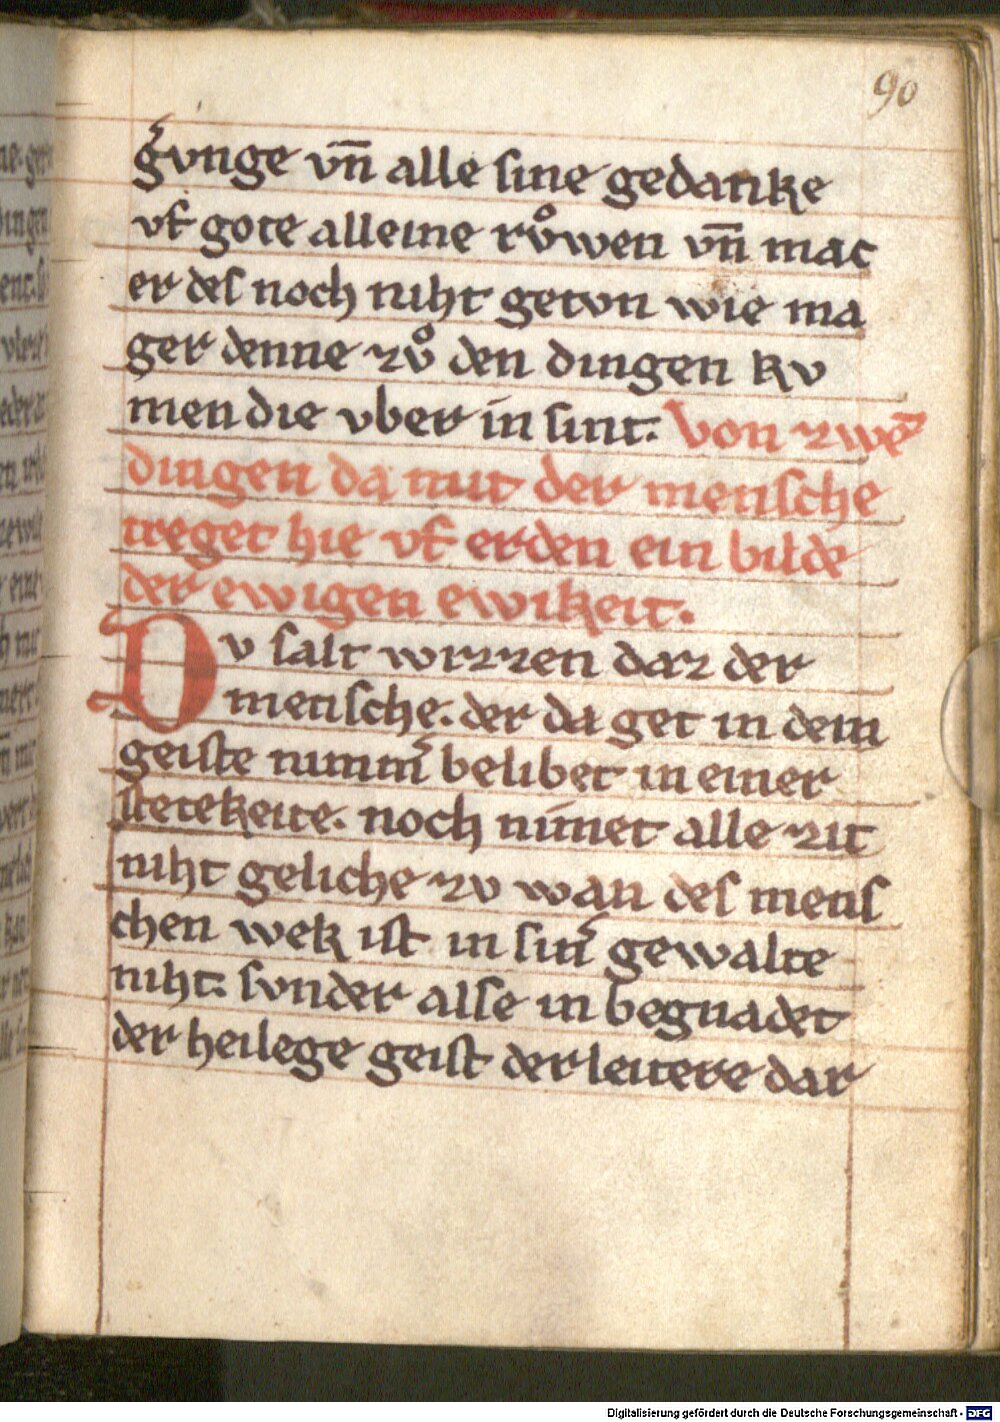 90
g͛vnge vn̄ alle sine gedanke
vf gote alleine rvͦwen vn̄ mac
er des noch niht getvn wie ma
ger denne zvͦ den dingen kv
men die vber in sint. Von zwē
dingen da mit der mensche
treget hie vf erden ein bilde
der ewigen ewikeit.
DV salt wizzen daz der
mensche. der da get in dem
geiste nimm͛ belibet in einer
stetekeite. noch nimet alle zit
niht geliche zv wan des mens
chen wek ist in sin͛ gewalte
niht. svnder alse in begnadet
der heilege geist der leitere dar
Digitalisierung gefördert durch die Deutsche Forschungsgemeinschaft - DFG